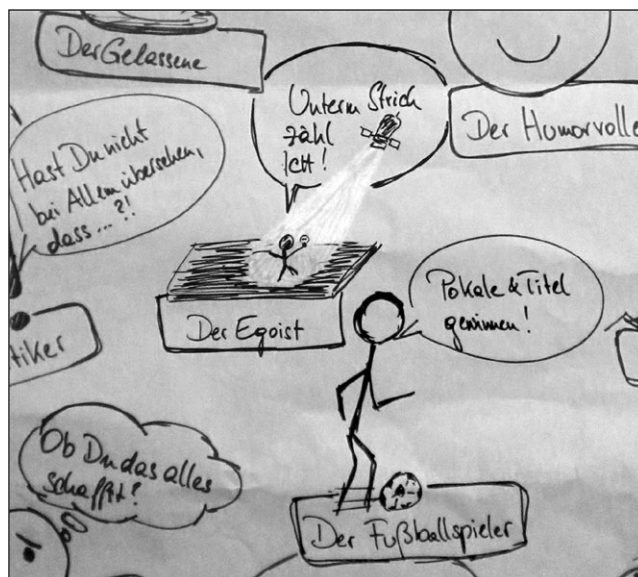 Der Gelassene
Unterm Strich
zähl
ICH!
Der Humorvolle
Hast Du nicht
bei Allem übersehen,
dass...?!
Der Egoist
Pokale & Titel
gewinnen!
tiker
Ob Du das alles
schaffst?
Der Fußballspieler